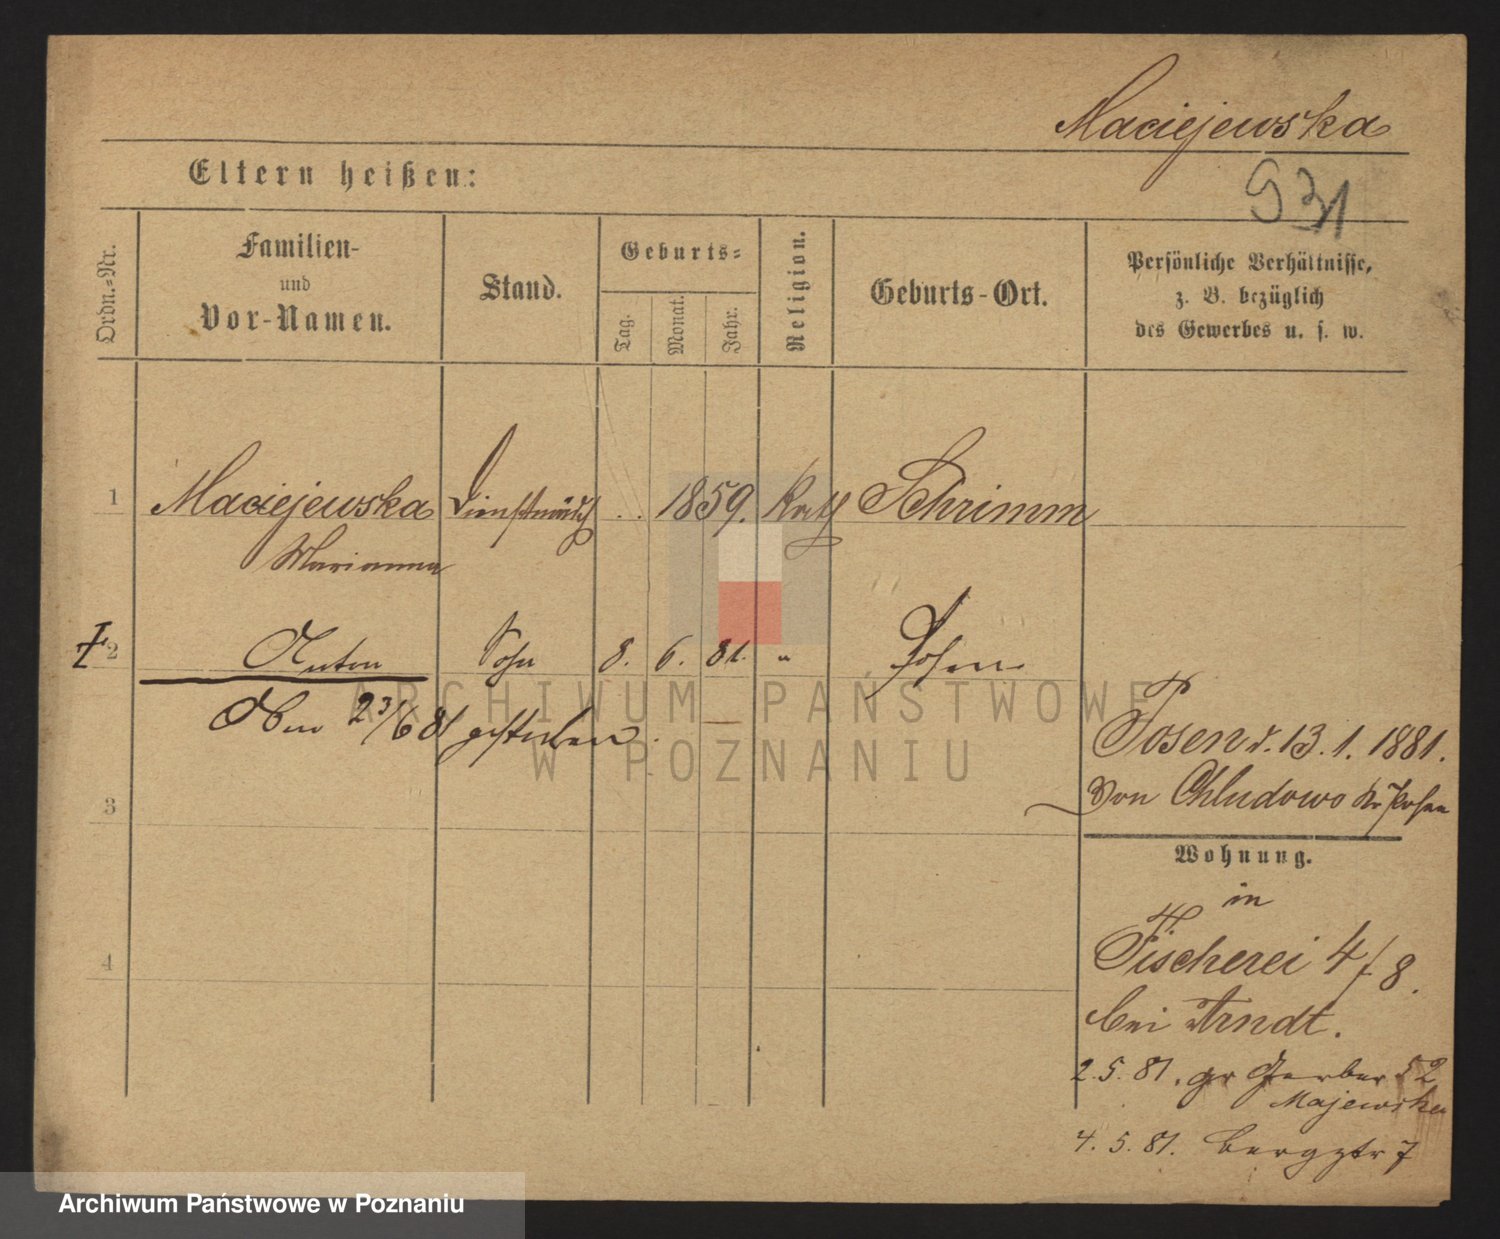 Maciejewska
931
Eltern heißen:
Ordn.=Nr.
Familien-
und
Vor-Namen.
Stand.
Geburts=
Tag.
Monat.
Jahr.
Religion.
Geburts-Ort.
Persönliche Verhältnisse,
z. B. bezüglich
des Gewerbes u. s. w.
1 Maciejewska Dienstmädch .. 1859. Kath Schrimm
Marianna
2 Anton Sohn 8. 6. 81. " Posen
23/6 81 gestorben.
ARCHIWUM PAŃSTWOWE
W POZNANIU
Posen d. 13. 1. 1881.
von Chludowo Kr Posen
3
Wohnung.
in
Fischerei 4/8.
4
bei Arndt.
2. 5. 81. gr Gerber 52
Majewska
4. 5. 81. Bergstr 7
Archiwum Państwowe w Poznaniu